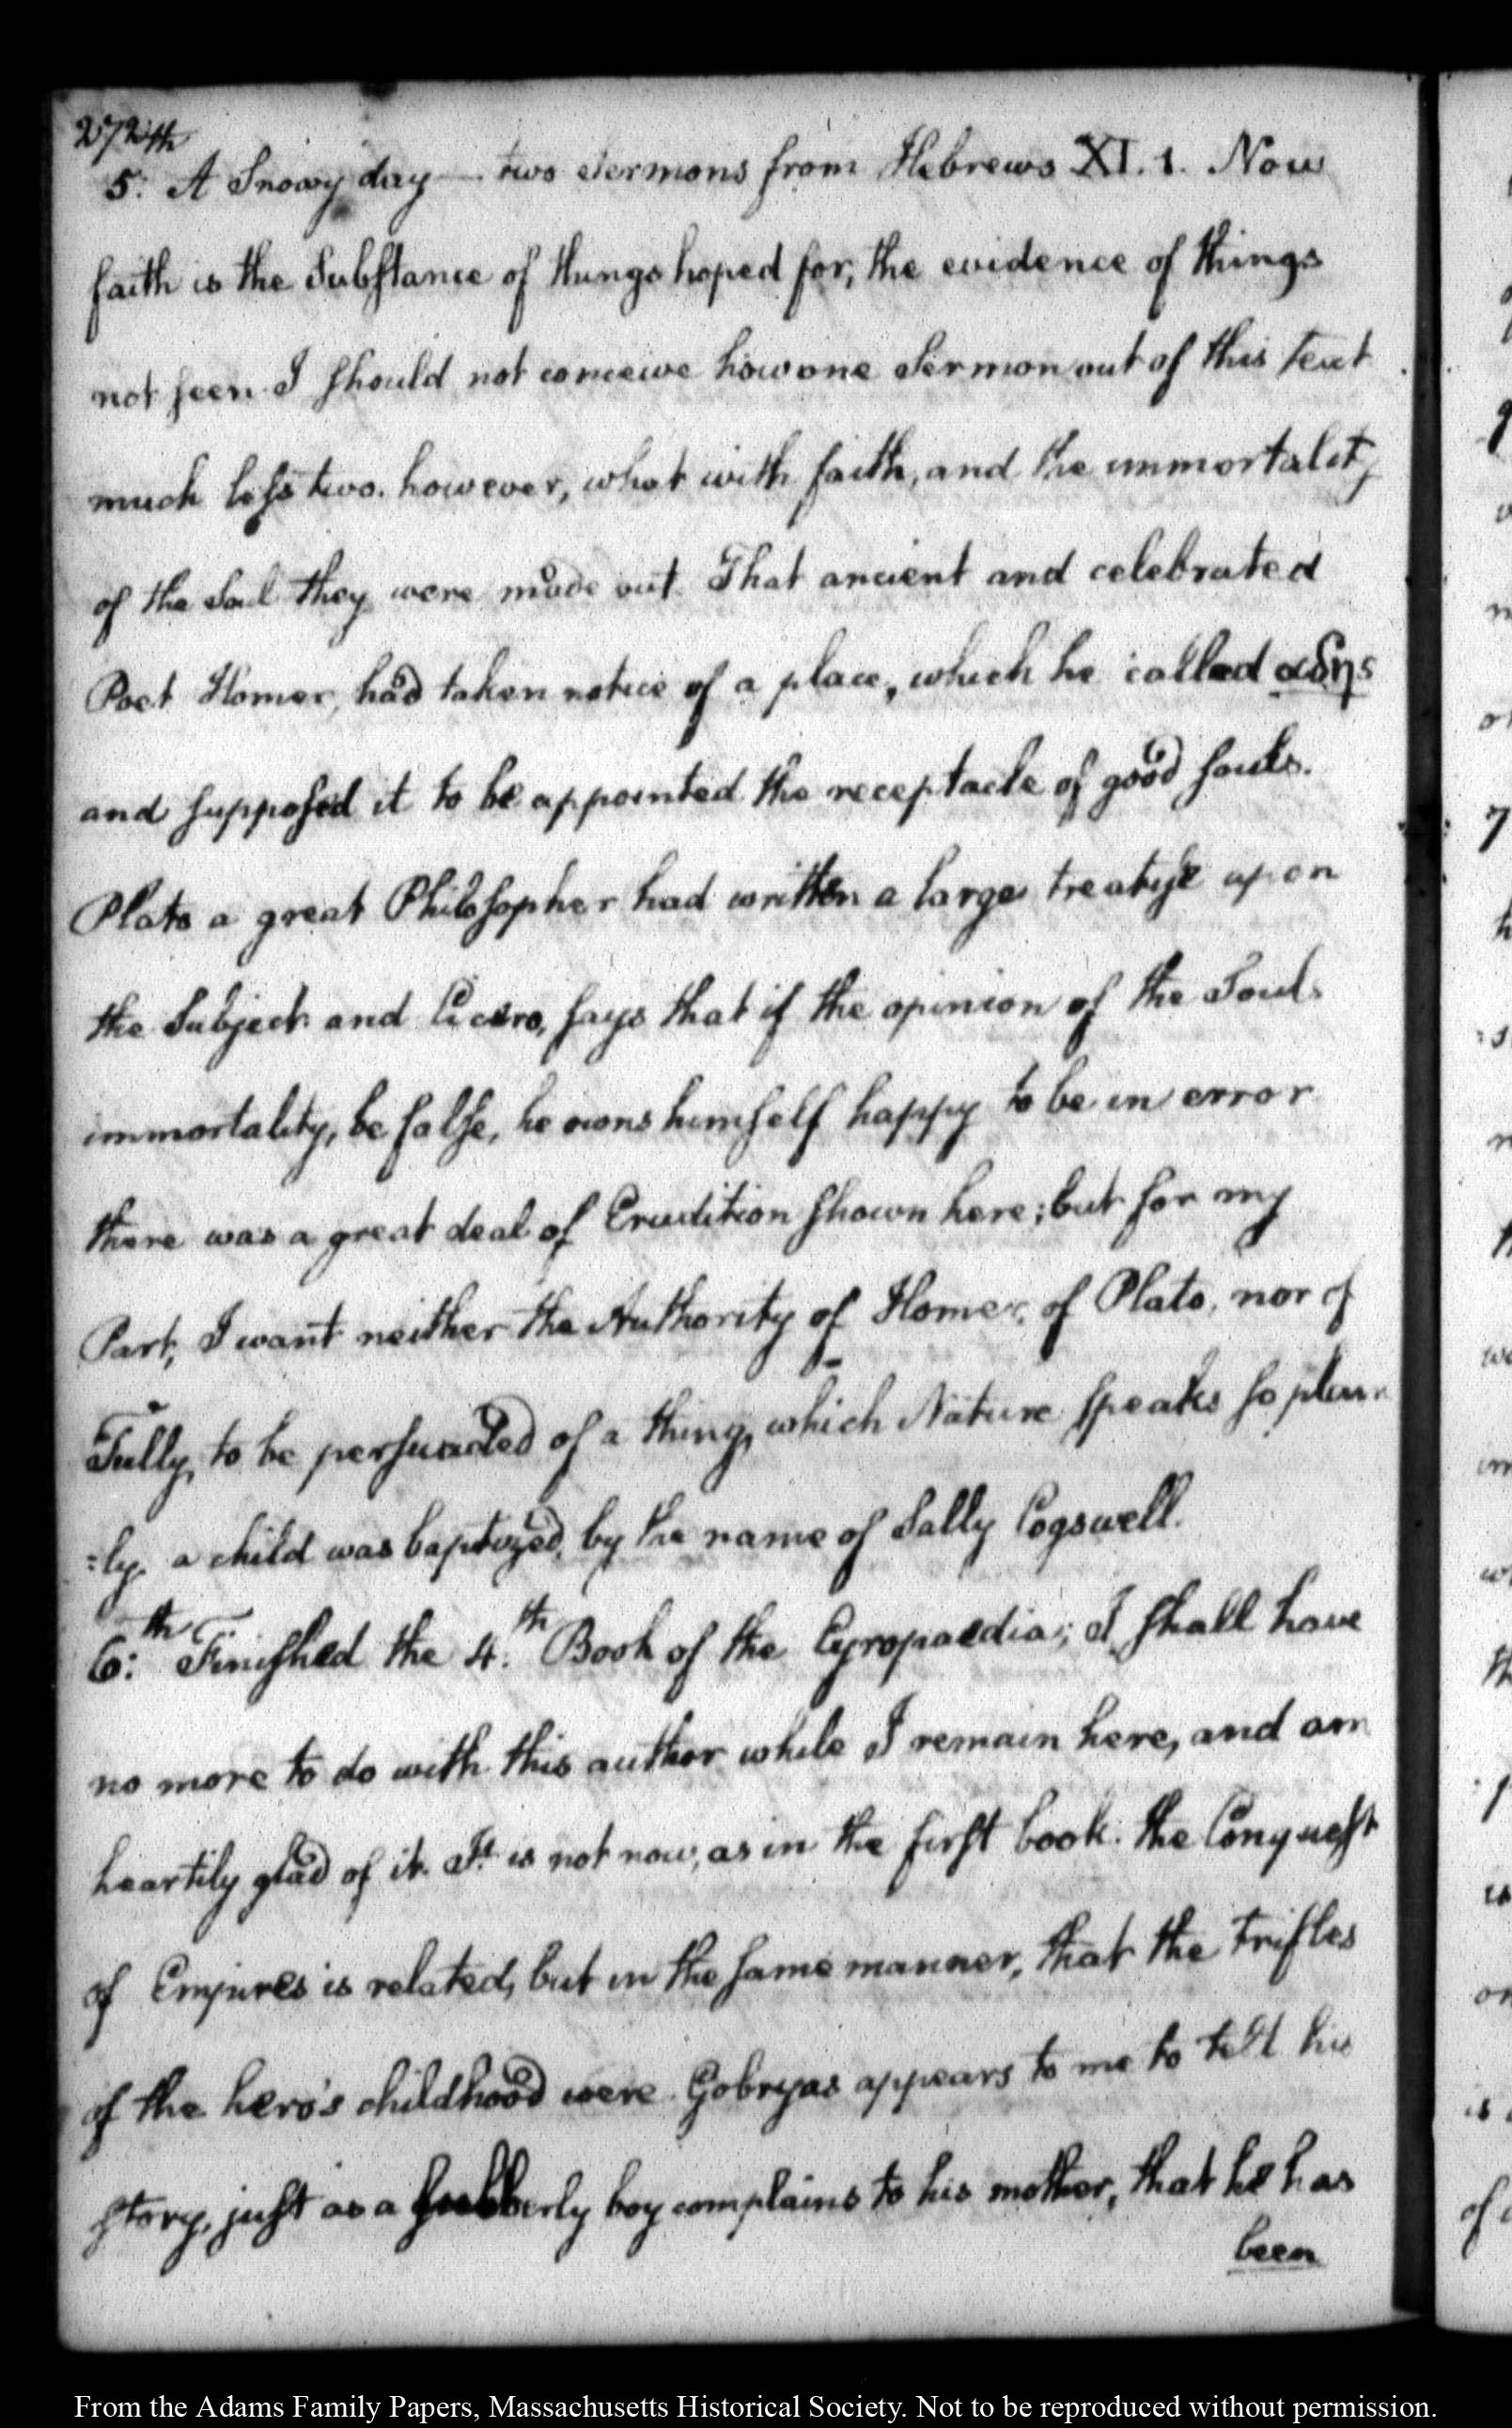 272
5.th A Snowy day — two Sermons from Hebrews XI. 1. Now
faith is the Substance of things hoped for, the evidence of things
not seen. I should not conceive how one Sermon out of this text
much less two. however, what with faith, and the immortality
of the Soul they were made out. That ancient and celebrated
Poet Homer, had taken notice of a place, which he called αδης
and supposed it to be appointed the receptacle of good souls.
Plato a great Philosopher had written a large treatyse upon
the Subject and Cicero, says that if the opinion of the Souls
immortality, be false, he owns himself happy to be in error
there was a great deal of Erudition shown here; but for my
Part, I want neither the Authority of Homer, of Plato, nor of
Tully, to be persuaded of a thing, which Nature speaks so plain
=ly. a child was baptized, by the name of Sally Cogswell.
6:th Finished the 4.th Book of the Cyropaedia; I shall have
no more to do with this author while I remain here, and am
heartily glad of it. It is not now, as in the first book. the Conquest
of Empires is related, but in the same manner, that the trifles
of the hero's childhood were. Gobryas appears to me to tell his
story, just as a lubberly boy complains to his mother, that he has
been
From the Adams Family Papers, Massachusetts Historical Society. Not to be reproduced without permission.